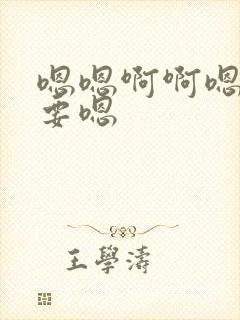 嗯嗯啊啊嗯
要嗯
王學濤